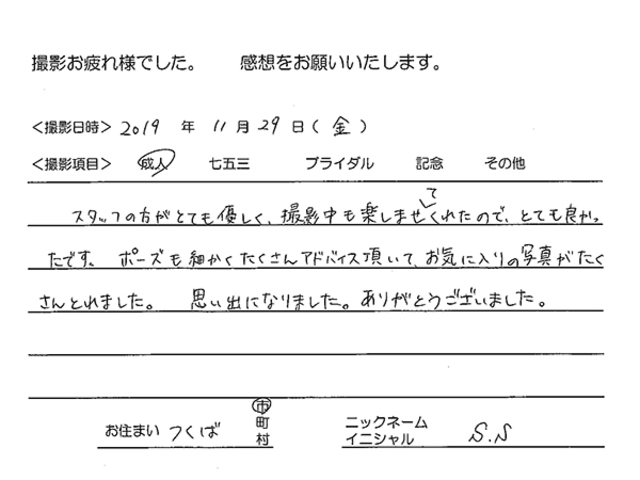 撮影お疲れ様でした。　感想をお願いいたします。
<撮影日時> 2019 年 11月 29日(金)
<撮影項目> 成人 七五三 ブライダル 記念 その他
スタッフの方がとても優しく、撮影中も楽しませてくれたので、とても良かっ
たです。 ポーズも細かくたくさんアドバイス頂いて、お気に入りの写真がたく
さんとれました。 思い出になりました。ありがとうございました。
お住まい つくば 市 町 村 ニックネーム イニシャル S.S